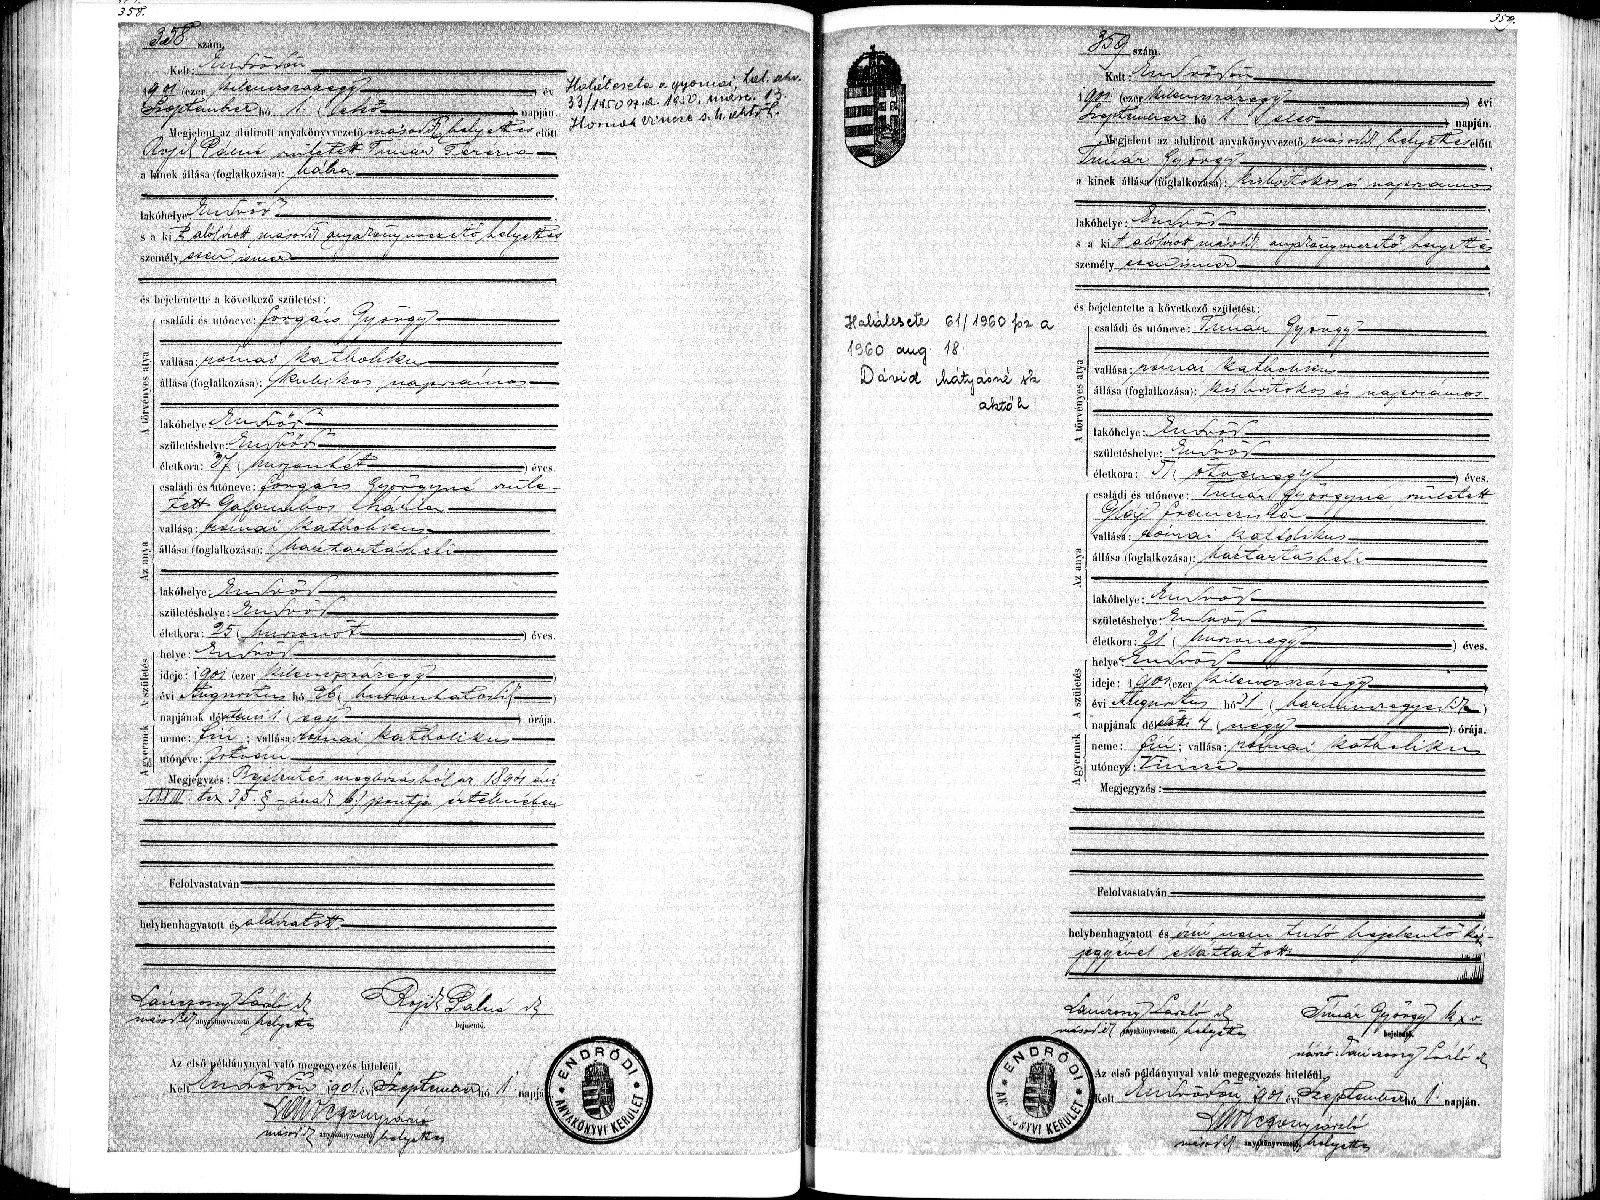 358.
358 szám.
Kelt: Endrődön
1901 (ezer kilenczszázegy) év
Szeptember hó 1. (első) napján.
Megjelent az alulirott anyakönyvvezető másodh helyettes előtt
Rojik Pálné született Timár Terézia
a kinek állása (foglalkozása): bába
lakóhelye Endrőd
s a kit alólirott másodh anyakönyvvezető helyettes
személyesen ismer
és bejelentette a következő születést:
A törvényes atya
családi és utóneve: Forgács György
vallása: római katholikus
állása (foglalkozása): kubikos napszámos
lakóhelye Endrőd
születéshelye: Endrőd
életkora: 37 (harminchét) éves.
Az anya
családi és utóneve: Forgács Györgyné szüle-
tett Galambos Mária
vallása: római katholikus
állása (foglalkozása): háztartásbeli
lakóhelye: Endrőd
születéshelye: Endrőd
életkora: 25 (huszonöt) éves.
A születés
helye: Endrőd
ideje: 1901 (ezer kilenczszázegy)
évi Augusztus hó 26 (huszonhatodik)
napjának délutáni 1 (egy) órája.
A gyermek
neme: fiú; vallása: római katholikus
utóneve:
Megjegyzés: Bejelentés megbizásból az 1894 évi
XXXIII. tcz § -ának b) pontja értelmében
Felolvastatván
helybenhagyatott és aláiratott
Lánczony László sk
másodh anyakönyvvezető helyettes
Rojik Pálné sk
bejelentő.
Az első példánynyal való megegyezés hiteléül.
Kelt Endrődön 1901 évi Szeptember hó 1 napján
másodh anyakönyvvezető helyettes
ENDRŐDI ANYAKÖNYVI KERÜLET
Halálesete a gyomai hal. akv.
33/1950. 1950. márc. 13.
Hornok Vincze s.k. aktőh.
359.
359 szám.
Kelt: Endrődön
1901 (ezer kilenczszázegy) évi
Szeptember hó 1 (első) napján.
Megjelent az alulirott anyakönyvvezető másodh helyettes előtt
Timár György
a kinek állása (foglalkozása): kisbirtokos és napszámos
lakóhelye: Endrőd
s a kit alólirott másodh anyakönyvvezető helyettes
személyesen ismer
és bejelentette a következő születést:
A törvényes atya
családi és utóneve: Timár György
vallása: római katholikus
állása (foglalkozása): kisbirtokos és napszámos
lakóhelye: Endrőd
születéshelye: Endrőd
életkora: 51 (ötvenegy) éves.
Az anya
családi és utóneve: Timár Györgyné született
vallása: római katholikus
állása (foglalkozása): háztartásbeli
lakóhelye: Endrőd
születéshelye: Endrőd
életkora: 21 (huszonegy) éves.
A születés
helye: Endrőd
ideje: 1901 (ezer kilenczszázegy)
évi Augusztus hó 31 (harminczegyedik)
napjának délutáni 4 (négy) órája.
A gyermek
neme: fiú; vallása: római katholikus
utóneve: Vincze
Megjegyzés:
Felolvastatván
helybenhagyatott és irni nem tudó bejelentő kéz-
jegyével elláttatott
Lánczony László sk
másodh anyakönyvvezető, helyettes
Timár György k x v.
bejelentő.
Lánczony László sk
Az első példánynyal való megegyezés hiteléül.
Kelt Endrődön 1901 évi Szeptember hó 1. napján.
másodh anyakönyvvezető, helyettes
ENDRŐDI ANYAKÖNYVI KERÜLET
Halálesete 61/1960 fsz a
1960 aug 18.
Dávid Mátyásné sk
aktőh